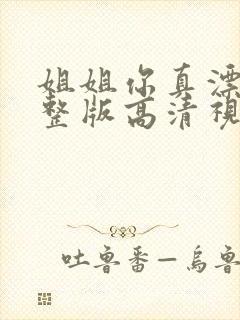 姐姐你真漂
整版高清視
吐魯番—烏魯